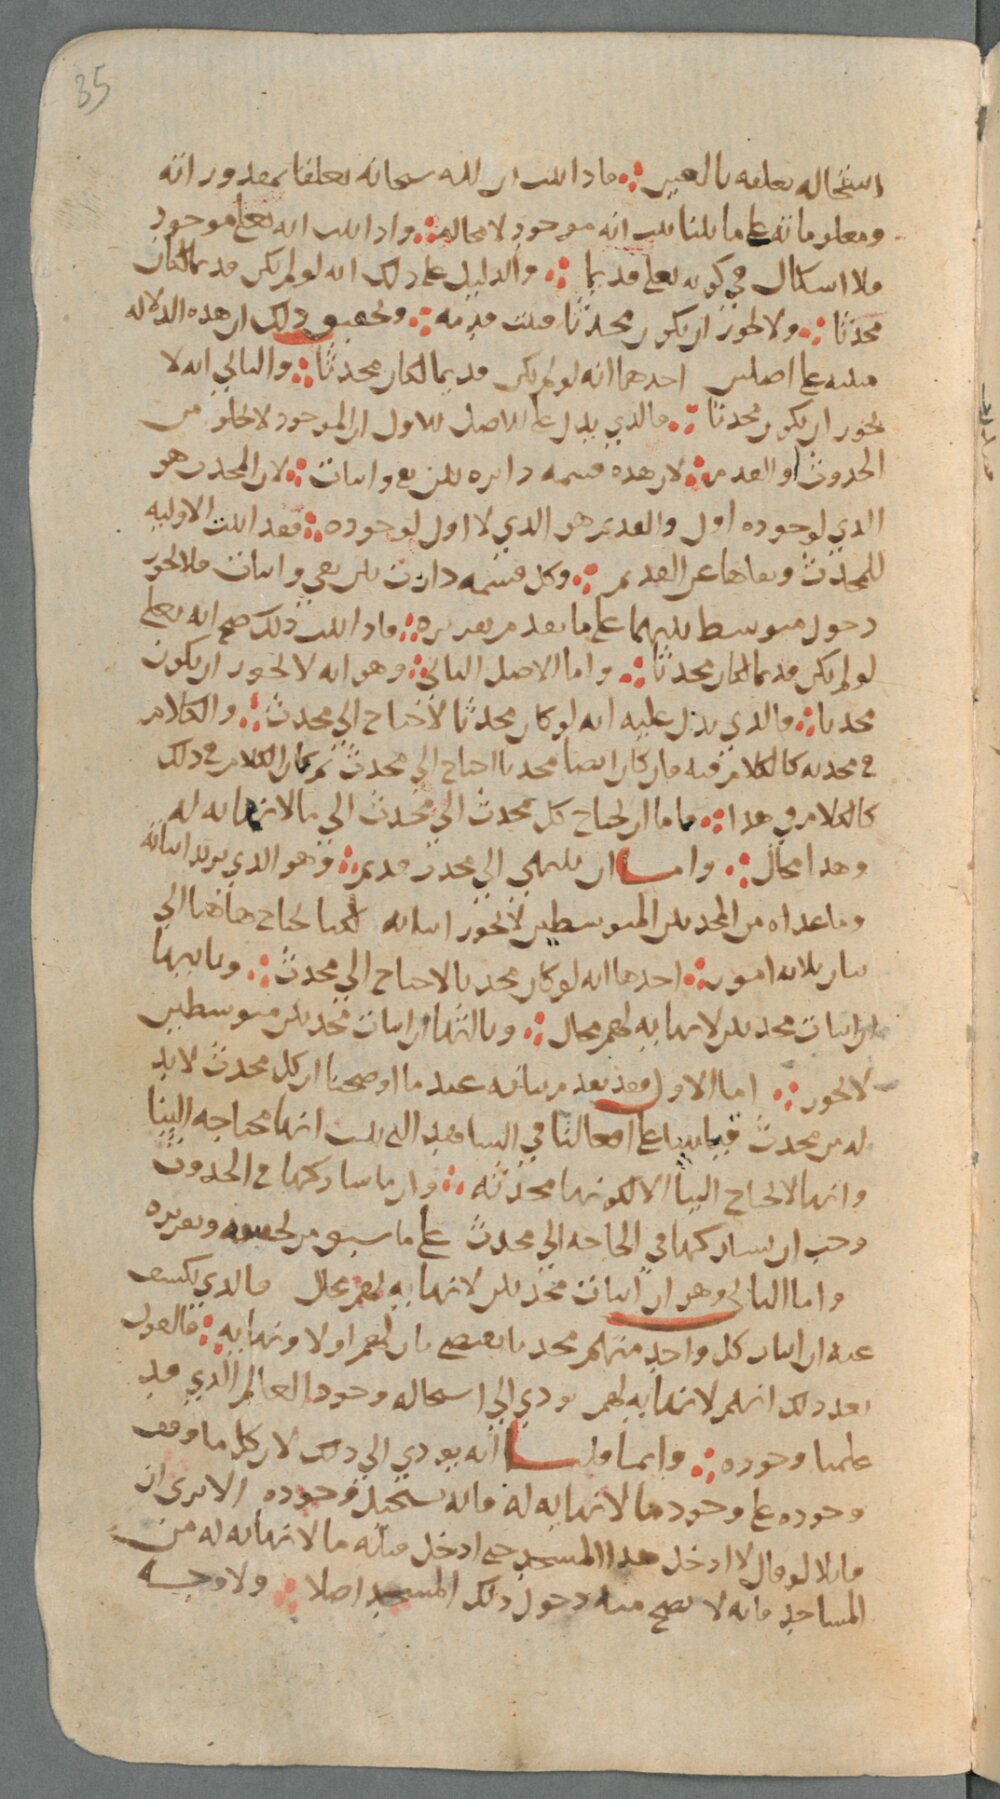 35
استحاله تعلقه بالغير فاذا ثبت ان لله سبحانه تعلقا بمقدوراته
ومعلوماته على ما بينا ثبت انه موجود لا محاله واذا ثبت انه تعالى موجود
فلا اشكال في كونه تعالى قديما والدليل على ذلك انه لو لم يكن قديما لكان
محدثا ولا يجوز ان يكون محدثا فثبت قدمه وتحقيق ذلك ان هذه الدلاله
مبنيه على اصلين احدهما انه لو لم يكن قديما لكان محدثا والثاني انه لا
يجوز ان يكون محدثا فالذي يدل على الاصل الاول ان الموجود لا يخلو من
الحدوث او القدم لان هذه قسمه دائره بين نفي واثبات لان المحدث هو
الذي لوجوده اول والقديم هو الذي لا اول لوجوده فقد اثبت الاوليه
للمحدث ونفاها عن القديم وكل قسمه دارت بين نفي واثبات فلا يجوز
دخول متوسط بينهما على ما تقدم تقريره فاذا ثبت ذلك صح انه تعالى
لو لم يكن قديما لكان محدثا واما الاصل الثاني وهو انه لا يجوز ان يكون
محدثا فالذي يدل عليه انه لو كان محدثا لاحتاج الى محدث والكلام
في محدثه كالكلام فيه فان كان ايضا محدثا احتاج الى محدث ثم كان الكلام في ذلك
كالكلام في هذا فاما ان يحتاج كل محدث الى محدث الى ما لا نهايه له
وهذا محال واما ان ينتهي الى محدث قديم وهو الذي نريد اثباته
وما عداه من المحدثين المتوسطين لا يجوز اثباته لكنا نحتاج هاهنا الى
بيان ثلاثه امور احدها انه لو كان محدثا لاحتاج الى محدث وثانيها
ان اثبات محدثين لا نهايه لهم محال وثالثها ان اثبات محدثين متوسطين
لا يجوز اما الاول فقد تقدم بيانه عند ما اوضحنا ان كل محدث لا بد
له من محدث قياسا على افعالنا في الشاهد التي ثبت انها محتاجه الينا
وانها لا تحتاج الينا الا لكونها محدثه وان ما شاركها في الحدوث
وجب ان يشاركها في الحاجه الى محدث على ما سبق من تحقيقه وتقريره
واما الثاني وهو ان اثبات محدثين لا نهايه لهم محال فالذي يكشف
عنه ان اثبات كل واحد منهم محدثا يقتضي بان لهم اولا ونهايه فالقول
بعد ذلك انهم لا نهايه لهم يودي الى استحاله وجود العالم الذي قد
علمنا وجوده وانما قلنا انه يودي الى ذلك لان كل ما وقف
وجوده على وجود ما لا نهايه له فانه يستحيل وجوده الا ترى ان
قائلا لو قال لا ادخل هذا المسجد حتى ادخل قبله ما لا نهايه له من
المساجد فانه لا يصح منه دخول ذلك المسجد اصلا ولا وجه